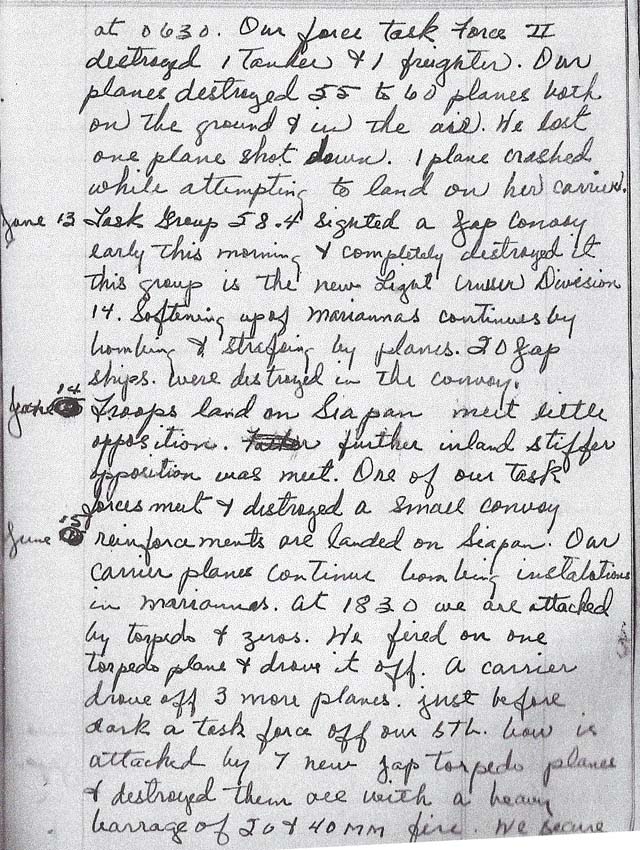 at 0630. Our force task Force II
destroyed 1 Tanker & 1 freighter. Our
planes destroyed 55 to 60 planes both
on the ground & in the air. We lost
one plane shot down. 1 plane crashed
while attempting to land on her carrier.
June 13 Task Group 58.4 sighted a Jap convoy
early this morning & completely destroyed it
this group is the new Light Cruiser Division
14. Softening up of Mariannas continues by
bombing & strafing by planes. 20 Jap
ships. were destroyed in the convoy.
June 14 Troops land on Siapan meet little
opposition. further inland stiffer
opposition was meet. One of our task
forces meet & distroyed a small convoy
June 15 reinforcements are landed on Siapan. Our
carrier planes continue bombing instalations
in Mariannas. At 1830 we are attacked
by torpedo & zeros. We fired on one
torpedo plane & drove it off. A carrier
drove off 3 more planes. just before
dark a task force off our STb. bow is
attacked by 7 new Jap torpedo planes
& destroyed them all with a heavy
barrage of 20 & 40 MM fire. We secure